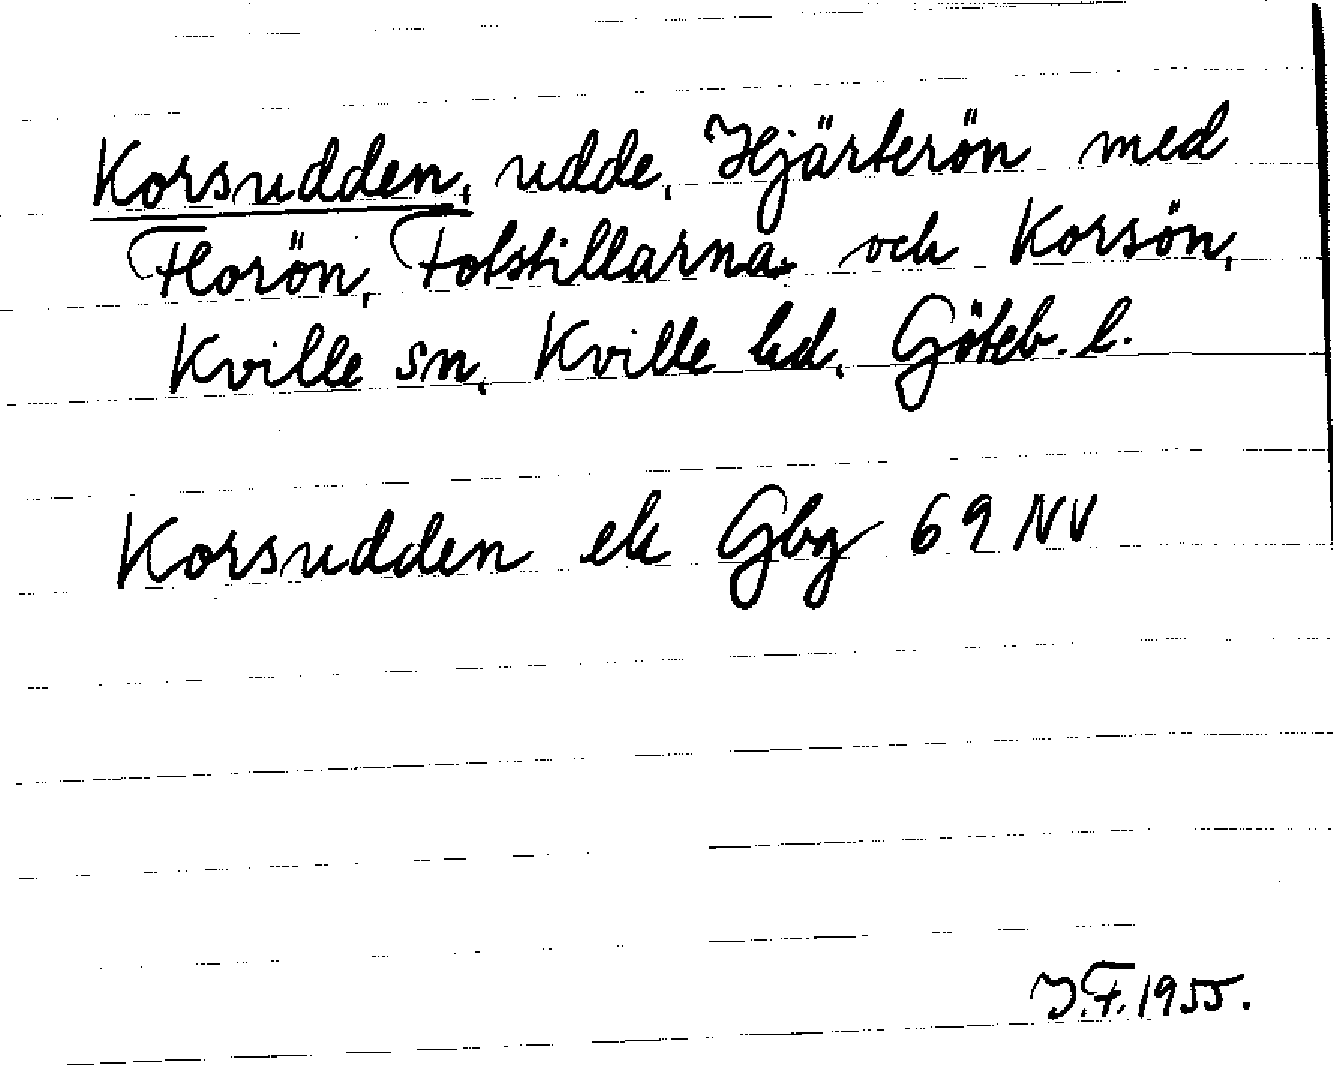 Korsudden, udde, Hjärterön med
Florön, Fotstillarna och Korsön,
Kville sn, Kville hd, Göteb. l.
Korsudden ek Gbg 69 NV
J.F. 1955.